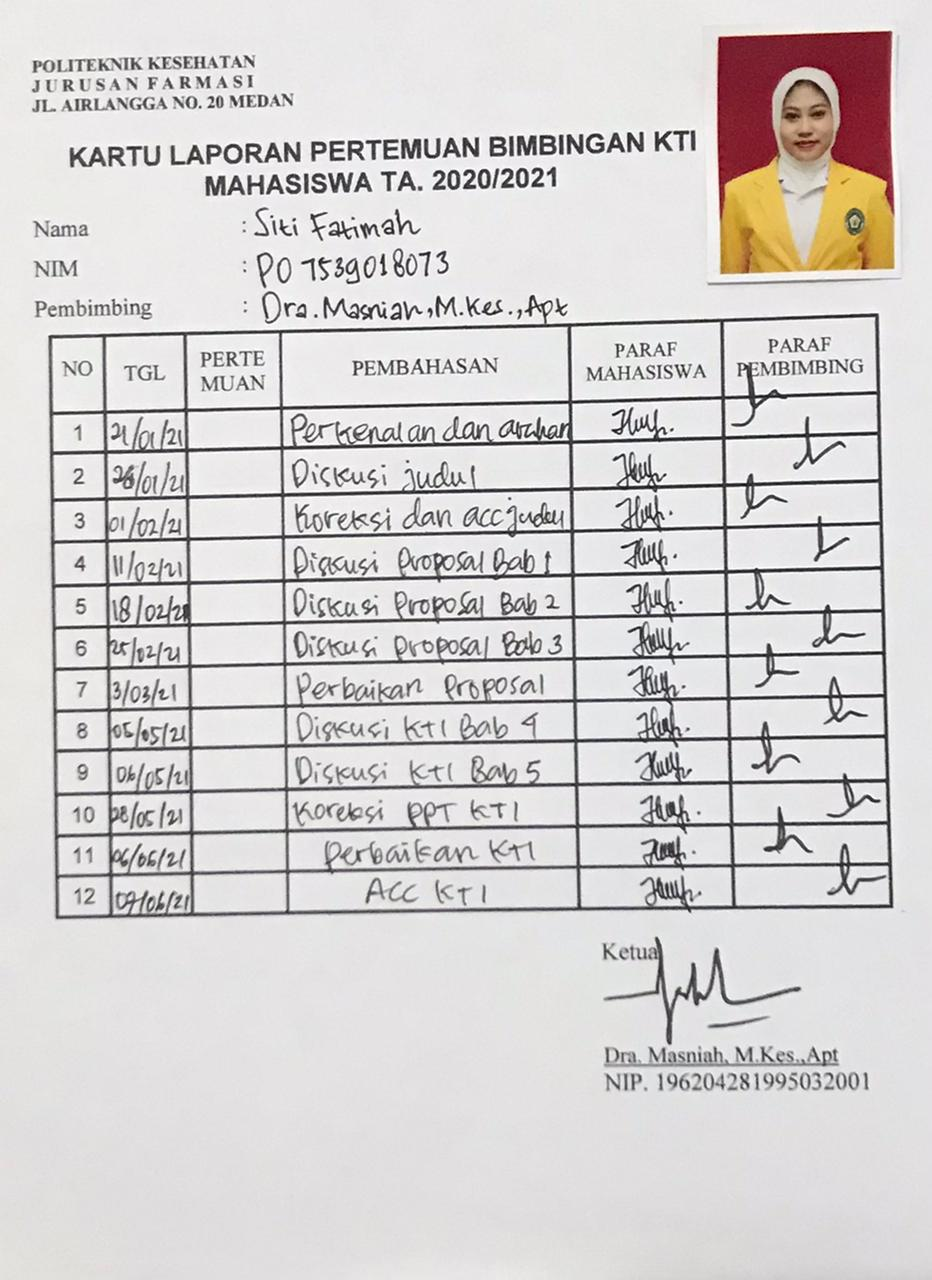 POLITEKNIK KESEHATAN
JURUSAN FARMASI
JL. AIRLANGGA NO. 20 MEDAN
KARTU LAPORAN PERTEMUAN BIMBINGAN KTI
MAHASISWA TA. 2020/2021
Nama : Siti Fatimah
NIM : PO 7539018073
Pembimbing : Dra. Masniah, M.Kes., Apt
NO TGL PERTE MUAN PEMBAHASAN PARAF MAHASISWA PARAF PEMBIMBING
1 21/01/21 Perkenalan dan arahan
2 26/01/21 Diskusi judul
3 01/02/21 Koreksi dan acc judul
4 11/02/21 Diskusi Proposal Bab 1
5 18/02/21 Diskusi Proposal Bab 2
6 25/02/21 Diskusi Proposal Bab 3
7 3/03/21 Perbaikan Proposal
8 05/05/21 Diskusi KTI Bab 4
9 06/05/21 Diskusi KTI Bab 5
10 28/05/21 Koreksi PPT KTI
11 06/06/21 Perbaikan KTI
12 07/06/21 ACC KTI
Ketua
Dra. Masniah, M.Kes.,Apt
NIP. 196204281995032001